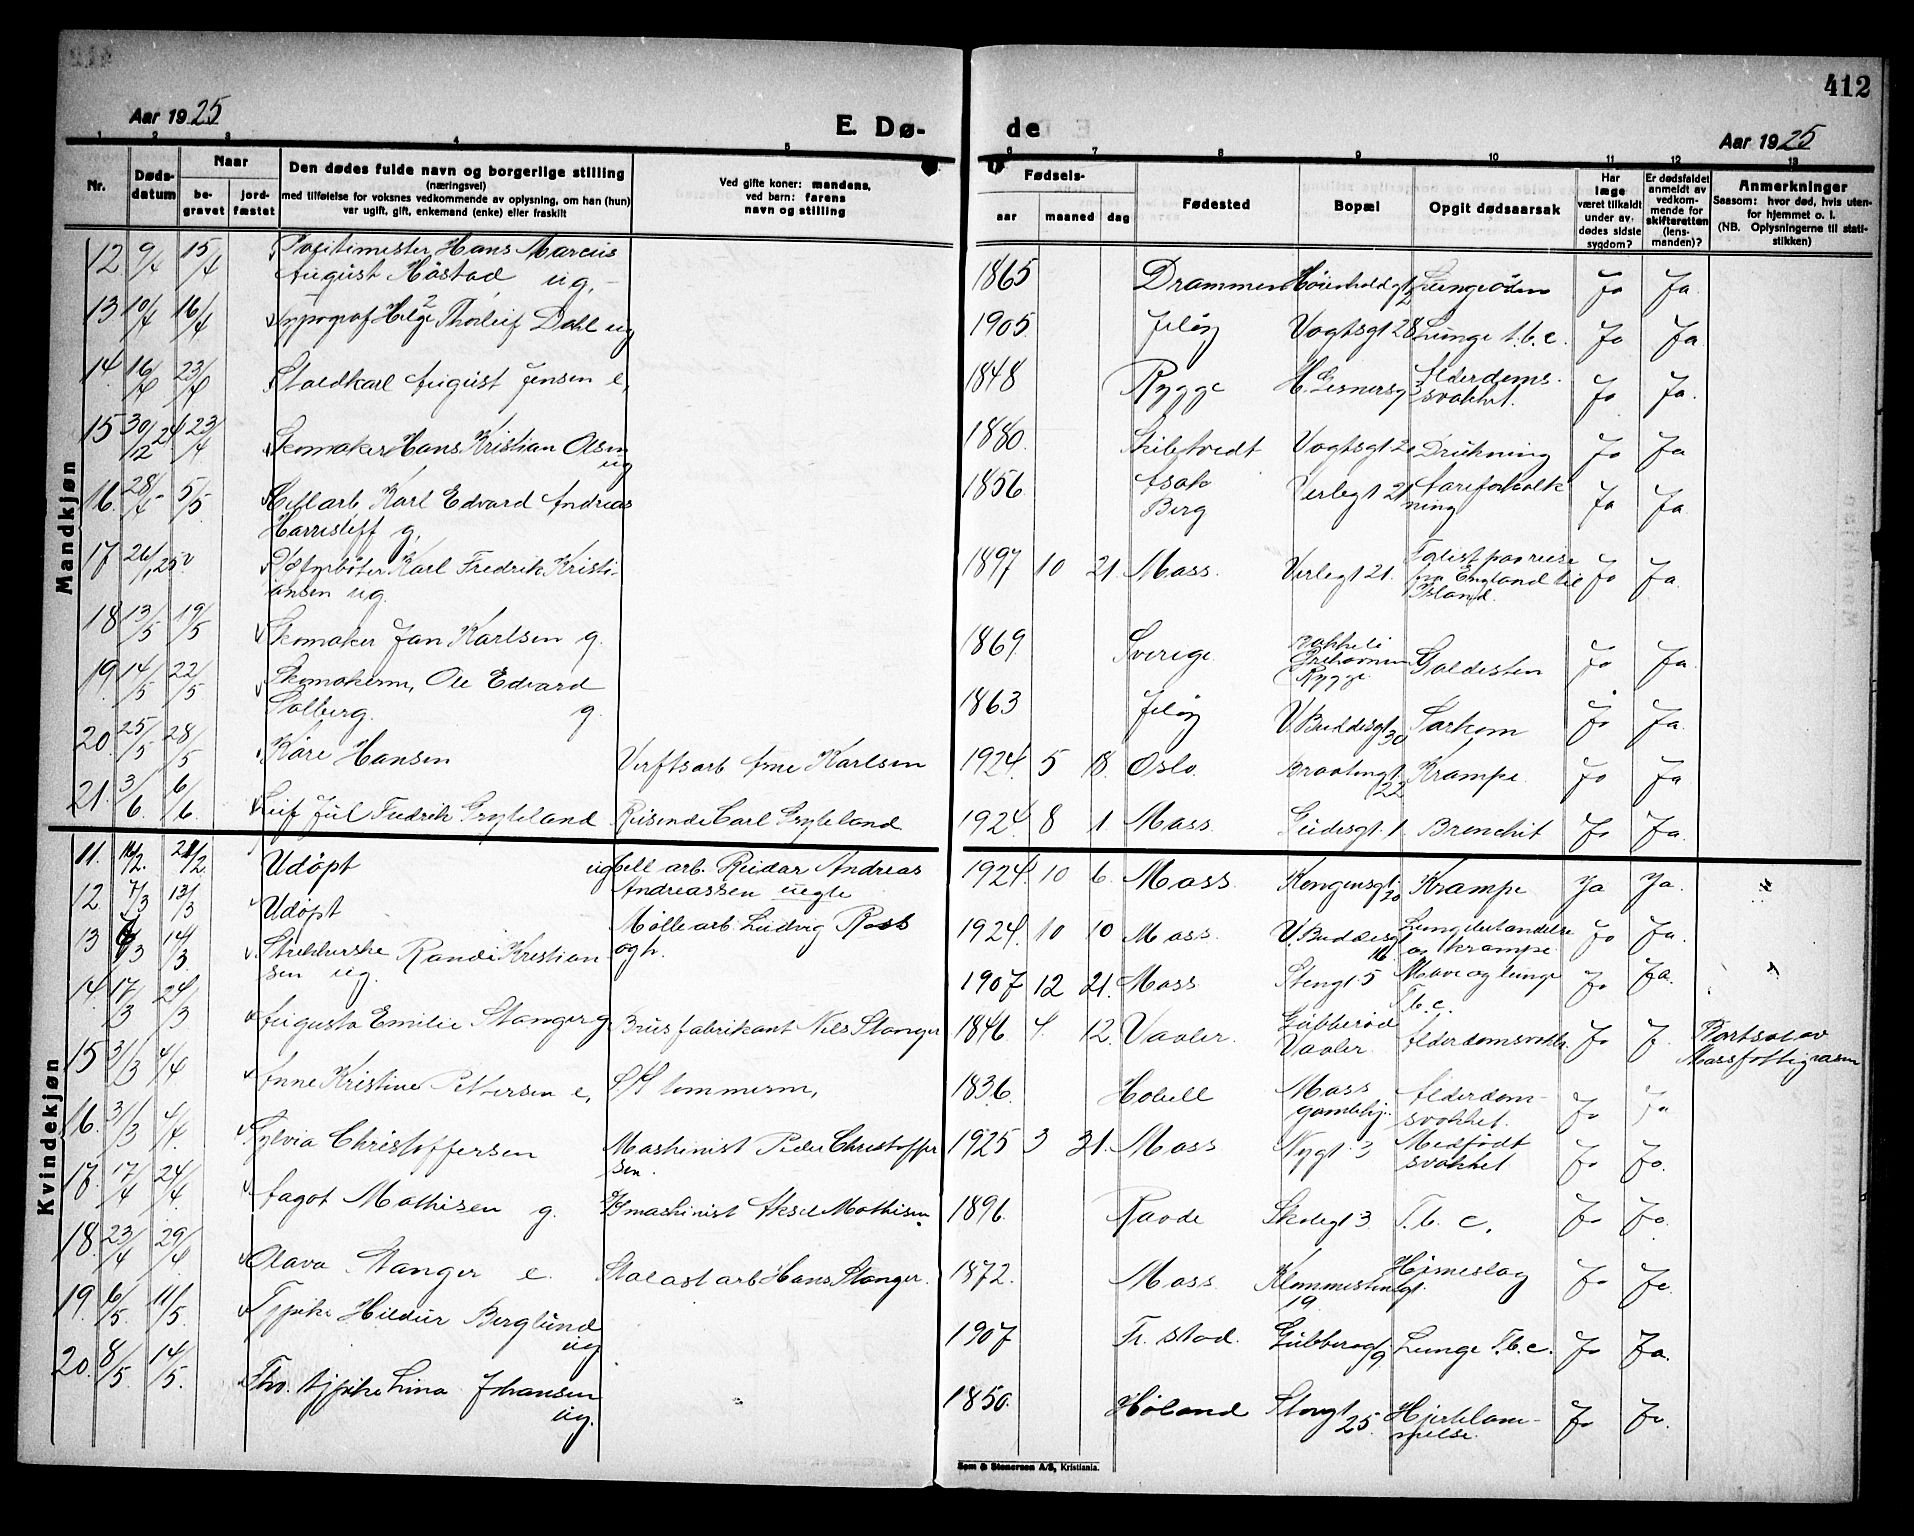 412
Aar 1925
E. Dø-
de
Aar 1925
1 2 3 4 5
6 7 8 9 10 11 12 13
Nr.
Døds-
datum
Naar
be-
gravet
jord-
fæstet
Den dødes fulde navn og borgerlige stilling
(næringsvei)
med tilføielse for voksnes vedkommende av oplysning, om han (hun)
var ugift, gift, enkemand (enke) eller fraskilt
Ved gifte koner: mandens,
ved barn: farens
navn og stilling
Fødsels-
aar
maaned
dag
Fødested
Bopæl
Opgit dødsaarsak
Har
læge
været tilkaldt
under av-
dødes sidste
sygdom?
Er dødsfaldet
anmeldt av
vedkom-
mende for
skifteretten
(lens-
manden)?
Anmerkninger
Saasom: hvor død, hvis uten-
for hjemmet o. l.
(NB. Oplysningerne til stati-
stikken)
Mandkjøn
12 9/4 15/4 Hans Marcus
August Høstad ug. 1865 Drammen Ja Ja
13 10/4 16/4 Typograf Helge Thorleif Dahl ug 1905 Jeløy Vogtsgt 28 Lunge t.b.c. Ja Ja
14 16/4 23/4 Staldkarl August Jensen e. 1848 Rygge Alderdoms-
svakhet. Ja Ja.
15 30/12 24 23/4 Skomaker Hans Kristian Olsen
ug 1880. Skibtvedt Vogtsgt 20 Drukning Ja Ja
16. 28/4 5/5 Cellarb Karl Edvard Andreas
g. 1856. Asak
Berg Verlegt 21 Aareforkalk
ning Ja Ja
17 26/1 25 Karl Fredrik Kristi-
ansen ug. 1897 10 21. Moss. Verlegt 21. Forlist paa reise
fra England til
Island. Ja Ja.
18 13/5 19/5 Skomaker Jan Karlsen g. 1869 Sverige. Bakkeli
Rygge Galdesten Ja Ja.
19. 14/5 22/5 Skomakerm. Ole Edvard
Solberg. g. 1863 Jeløy V. Buddesgt
30 Sarkom Ja Ja.
20. 25/5 28/5 Kåre Hansen Verftsarb Arne Karlsen 1924. 5 18. Oslo. Braatengt
22 Krampe. Ja Ja
21. 3/6. 6/6. Leif Jul Fredrik Gryteland Reisende Carl Gryteland 1924. 8 1 Moss. Gudesgt. 1 Bronchit Ja Ja.
Kvindekjøn
11. 16/2. 21/2. Udøpt ug Cell arb. Reidar Andreas
Andreassen uegte 1924. 10 6. Moss. Kongensgt.
20 Krampe Ja Ja.
12 7/3 13/3 Udøpt Møllearb. Ludvig Ross
og h. 1924. 10 10 Moss. V. Buddesgt
16 Lungebetændelse
og krampe Ja Ja.
13 6/3 14/3 Randi Kristian
sen ug. 1907 12 21. Moss Stengt 5 Mave og lunge
T.b.c. Ja Ja.
14. 17/3 24/3 Augusta Emilie Stanger g. Brusfabrikant Nils Stanger 1846 4. 12. Vaaler. Gubberød
Vaaler. Alderdomsvakh. Ja J. Bortsat av
Mossfattigvæsen
15 31/3 4/4 Anne Kristine Pettersen e. tømmerm. 1836. Hobøll Moss
gamlehj. Alderdom-
svakhet. Ja Ja
16. 31/3 4/4. Sylvia Christoffersen Maskinist Peder Christoffer
sen. 1925 3 31. Moss Nygt. 3 Medfødt
svakhet Ja Ja.
17. 17/4 24/4. Aagot Mathisen g. maskinist Aksel Mathisen 1896. Raade Skolegt 3 T.b.c. Ja Ja.
18. 23/4 29/4 Olava Stanger e. Hans Stanger. 1872. Moss. 19 Hjerneslag Ja Ja.
19. 6/5. 11/5. Hildur Berglund
ug 1907 Fr. stad. 9 Lunge T.b.c. Ja Ja.
20. 8/5. 14/5. Lina Johansen
ug. 1850. Høland Storgt
25. Hjertelam-
melse. Ja Ja.
Sem & Stenersen A/S, Kristiania.